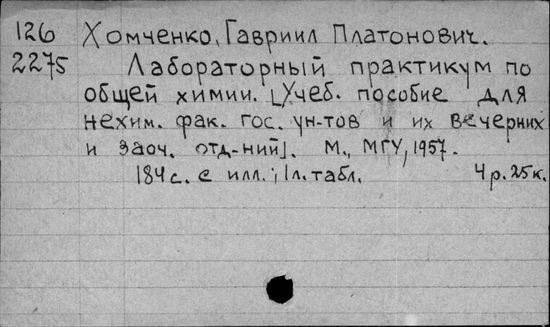 126 Хомченко, Гавриил Платонович.
2275 Лабораторный практикум по
общей химии. [Учеб. пособие для
нехим. фак. гос. ун-тов и их вечерних
и заоч. отд-ний]. М., МГУ, 1957.
184 с. с илл.; 1 л. табл. 4 р. 25 к.